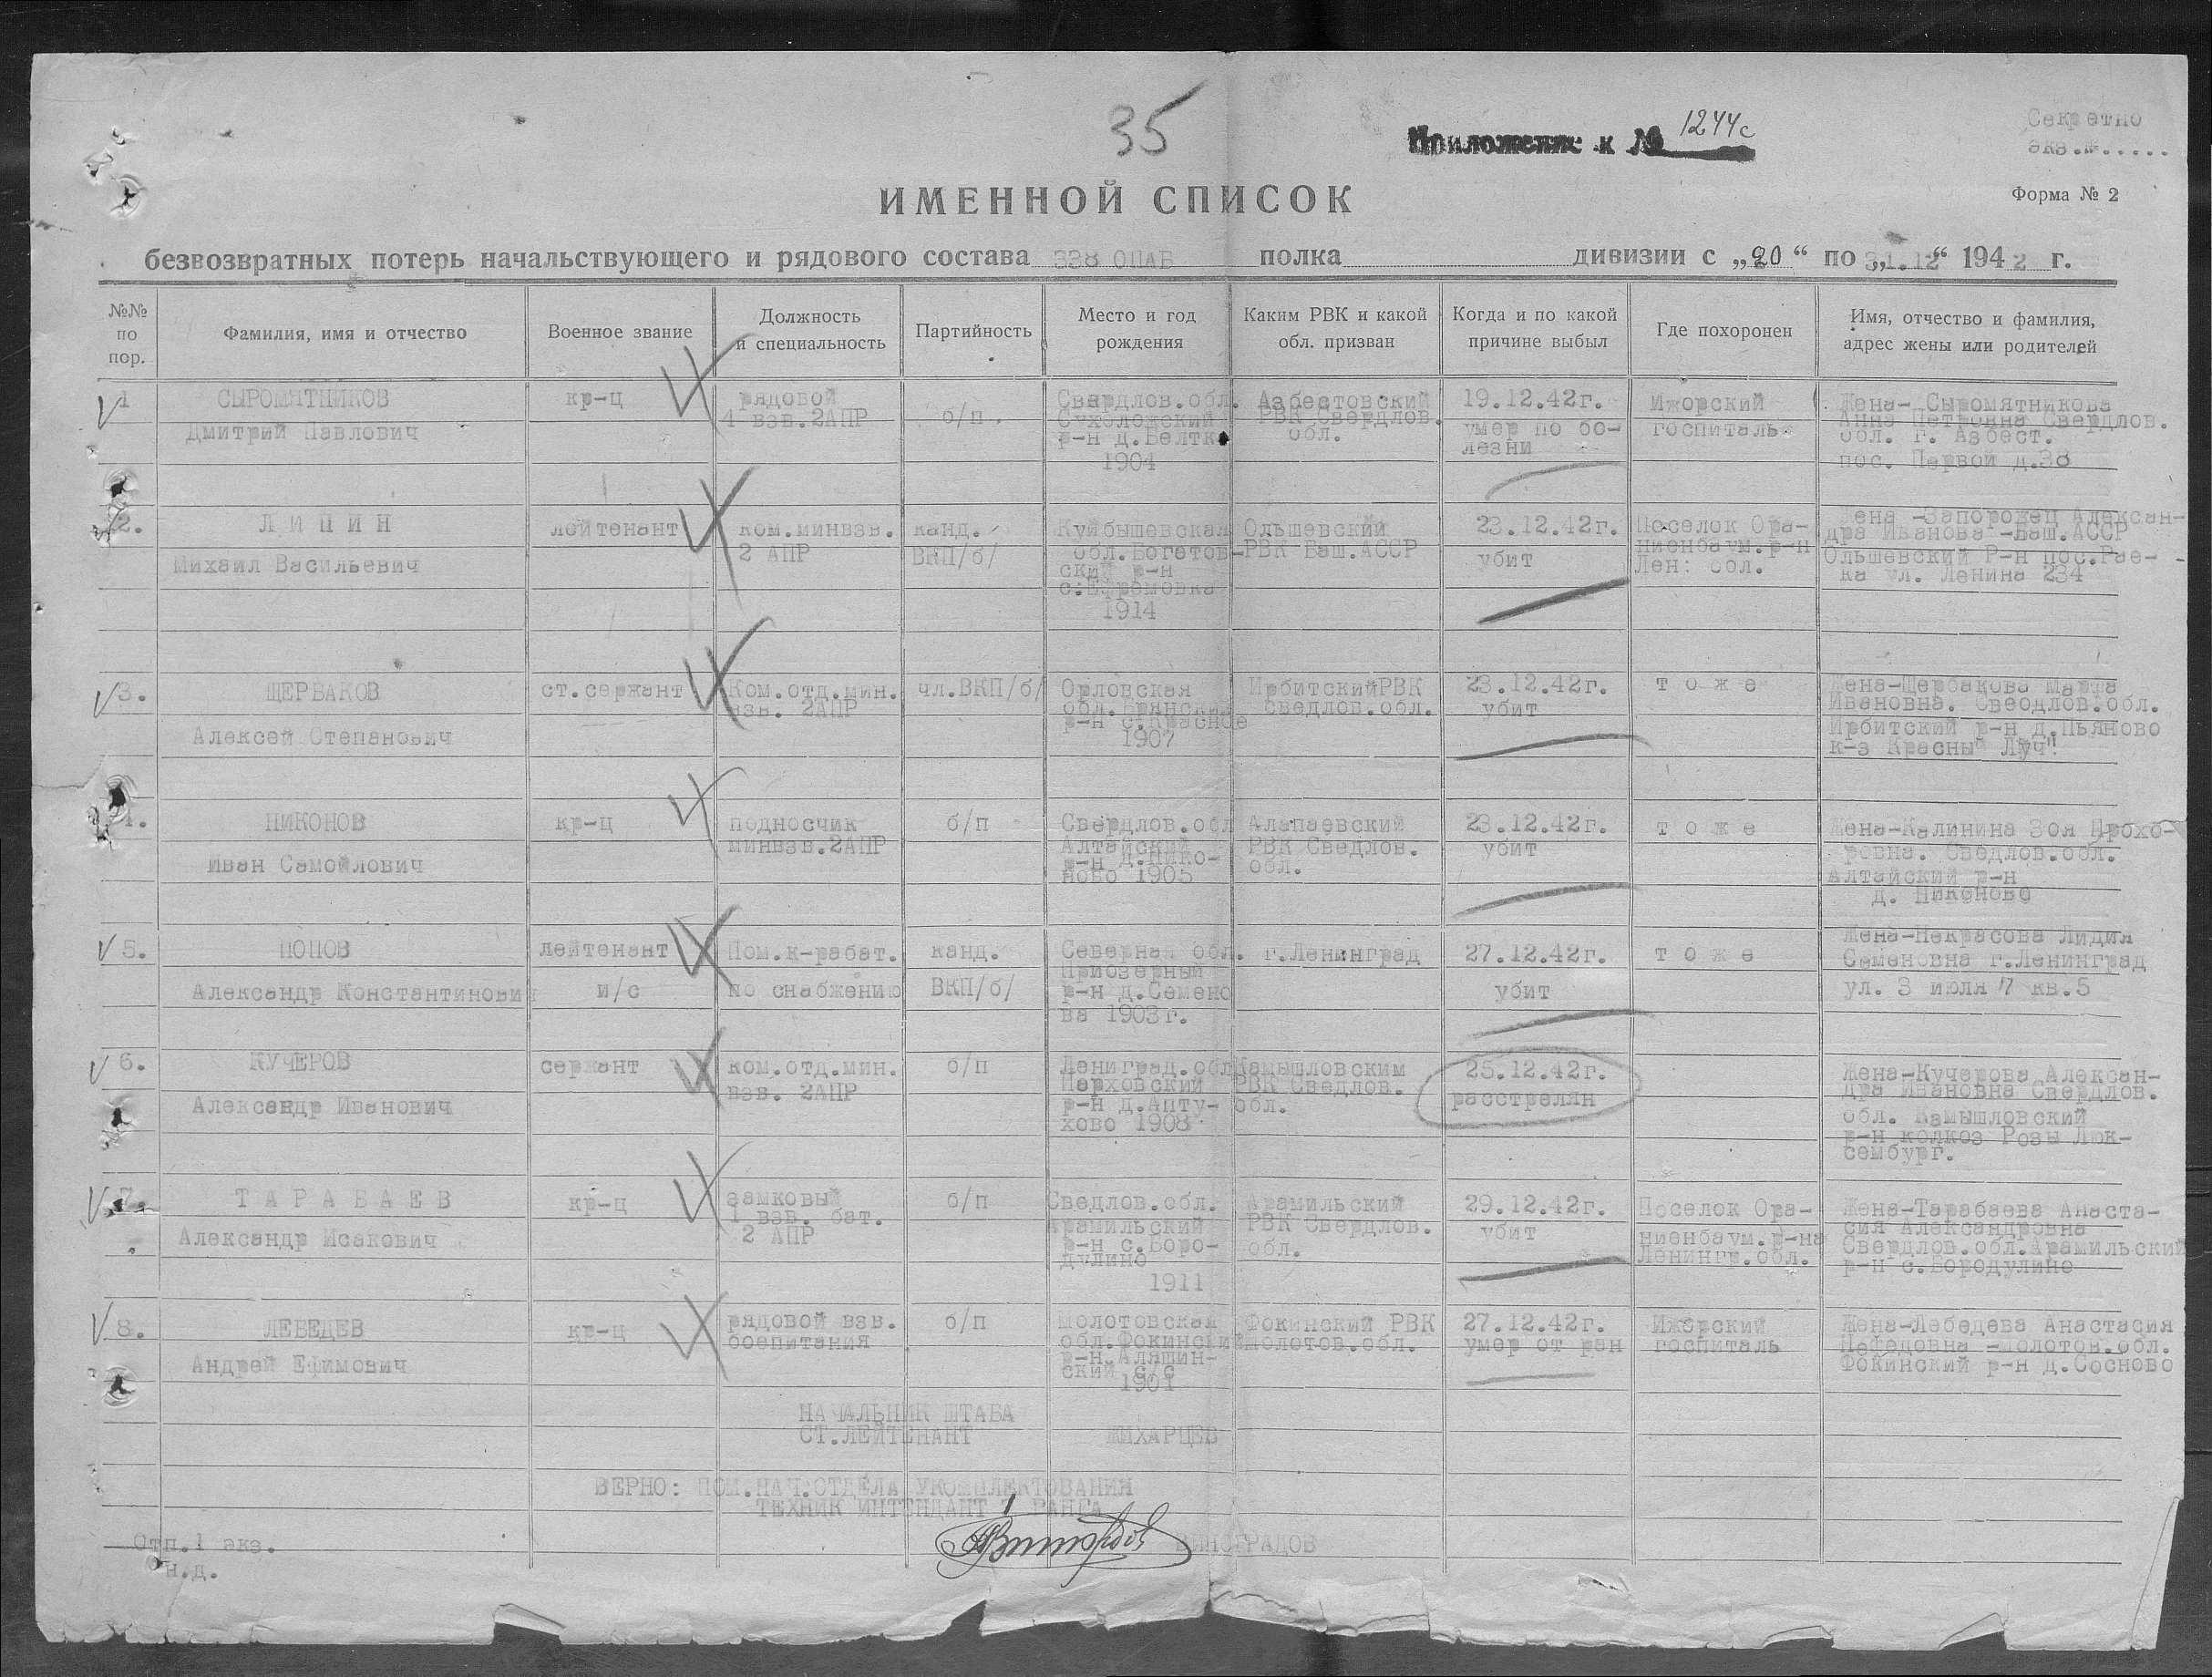 35
Приложение к № 1244с
Секретно
экз.№.....
ИМЕННОЙ СПИСОК
Форма № 2
безвозвратных потерь начальствующего и рядового состава 338 ОПАБ полка дивизии с „20“ по „31.12“ 1942 г.
№№ по пор.
Фамилия, имя и отчество
Военное звание
Должность и специальность
Партийность
Место и год рождения
Каким РВК и какой обл. призван
Когда и по какой причине выбыл
Где похоронен
Имя, отчество и фамилия, адрес жены или родителей
1
СЫРОМЯТНИКОВ
Дмитрий Павлович
кр-ц
рядовой
1 взв. 2АПР
б/п
Свердлов.обл.
Сухоложский
р-н д.Белтк
1904
Азбестовский
РВК Свердлов.
обл.
19.12.42г.
умер по бо-
лезни
Ижорский
госпиталь
Жена- Сыромятникова
Анна Петровна Свердлов.
обл. г. Азбест.
пос. Первой д.38
2.
ЛИПИН
Михаил Васильевич
лейтенант
ком.минвзв.
2 АПР
канд.
ВКП/б/
Куйбышевская
обл.Богатов-
ский р-н
с.Ефремовка
1914
Ольшевский
РВК Баш.АССР
23.12.42г.
убит
Поселок Ора-
ниенбаум.р-н
Лен: обл.
Жена -Запорожец Алексан-
дра Иванова -Баш.АССР
Ольшевский Р-н пос.Рае-
ка ул. Ленина 234
3.
ЩЕРБАКОВ
Алексей Степанович
ст.сержант
Ком.отд.мин.
взв. 2АПР
чл.ВКП/б/
Орловская
обл.Брянский
р-н с.Красное
1907
ИрбитскийРВК
Сведлов.обл.
23.12.42г.
убит
тоже
Жена-Щербакова Марта
Ивановна. Свеодлов.обл.
Ирбитский р-н д.Пьяново
к-з Красны" Луч"
4.
НИКОНОВ
Иван Самойлович
кр-ц
подносчик
минвзв.2АПР
б/п
Свердлов.обл
Алтайский
р-н д.Нико-
ново 1905
Алапаевский
РВК Сведлов.
обл.
23.12.42г.
убит
тоже
Жена-Калинина Зоя Прохо-
ровна. Сведлов.обл.
Алтайский р-н
д. Никоново
5.
ПОПОВ
Александр Константинович
лейтенант
и/с
Пом.к-рабат.
по снабжению
канд.
ВКП/б/
Северная обл.
Приозерный
р-н д.Семено
ва 1903г.
г.Ленинград
27.12.42г.
убит
тоже
Жена-Некрасова Лидия
Семеновна г.Ленинград
ул. 3 июля 7 кв.5
6.
КУЧЕРОВ
Александр Иванович
сержант
ком.отд.мин.
взв. 2АПР
б/п
Лениград.обл
Парховский
р-н д.Апту-
хово 1908
Камышловским
РВК Сведлов.
обл.
25.12.42г.
расстрелян
Жена-Кучерова Алексан-
дра Ивановна Свердлов.
обл. Камышловский
р-н колкоз Розы Люк-
сембург.
7.
ТАРАБАЕВ
Александр Исакович
кр-ц
замковый
1 взв. бат.
2 АПР
б/п
Сведлов.обл.
Арамильский
р-н с.Боро-
дулино
1911
Арамильский
РВК Свердлов.
обл.
29.12.42г.
убит
Поселок Ора-
ниенбаум.р-на
Ленингр.обл.
Жена-Тарабаева Анаста-
сия Александровна
Свердлов.обл.Арамильский
р-н с.Бородулино
8.
ЛЕБЕДЕВ
Андрей Ефимович
кр-ц
рядовой взв.
боепитания
б/п
Молотовская
обл.Фокинский
р-н.Аляшин-
ский с/с
1901
Фокинский РВК
Молотов.обл.
27.12.42г.
умер от ран
Ижорский
госпиталь
Жена-Лебедева Анастасия
Нефедовна -Молотов.обл.
Фокинский р-н д.Сосново
НАЧАЛЬНИК ШТАБА
СТ.ЛЕЙТЕНАНТ ЖИХАРЦЕВ
ВЕРНО: ПОМ.НАЧ.ОТДЕЛА УКОМПЛЕКТОВАНИЯ
ТЕХНИК ИНТЕНДАНТ 1 РАНГА
ВИНОГРАДОВ
Отп.1 экз.
н.д.